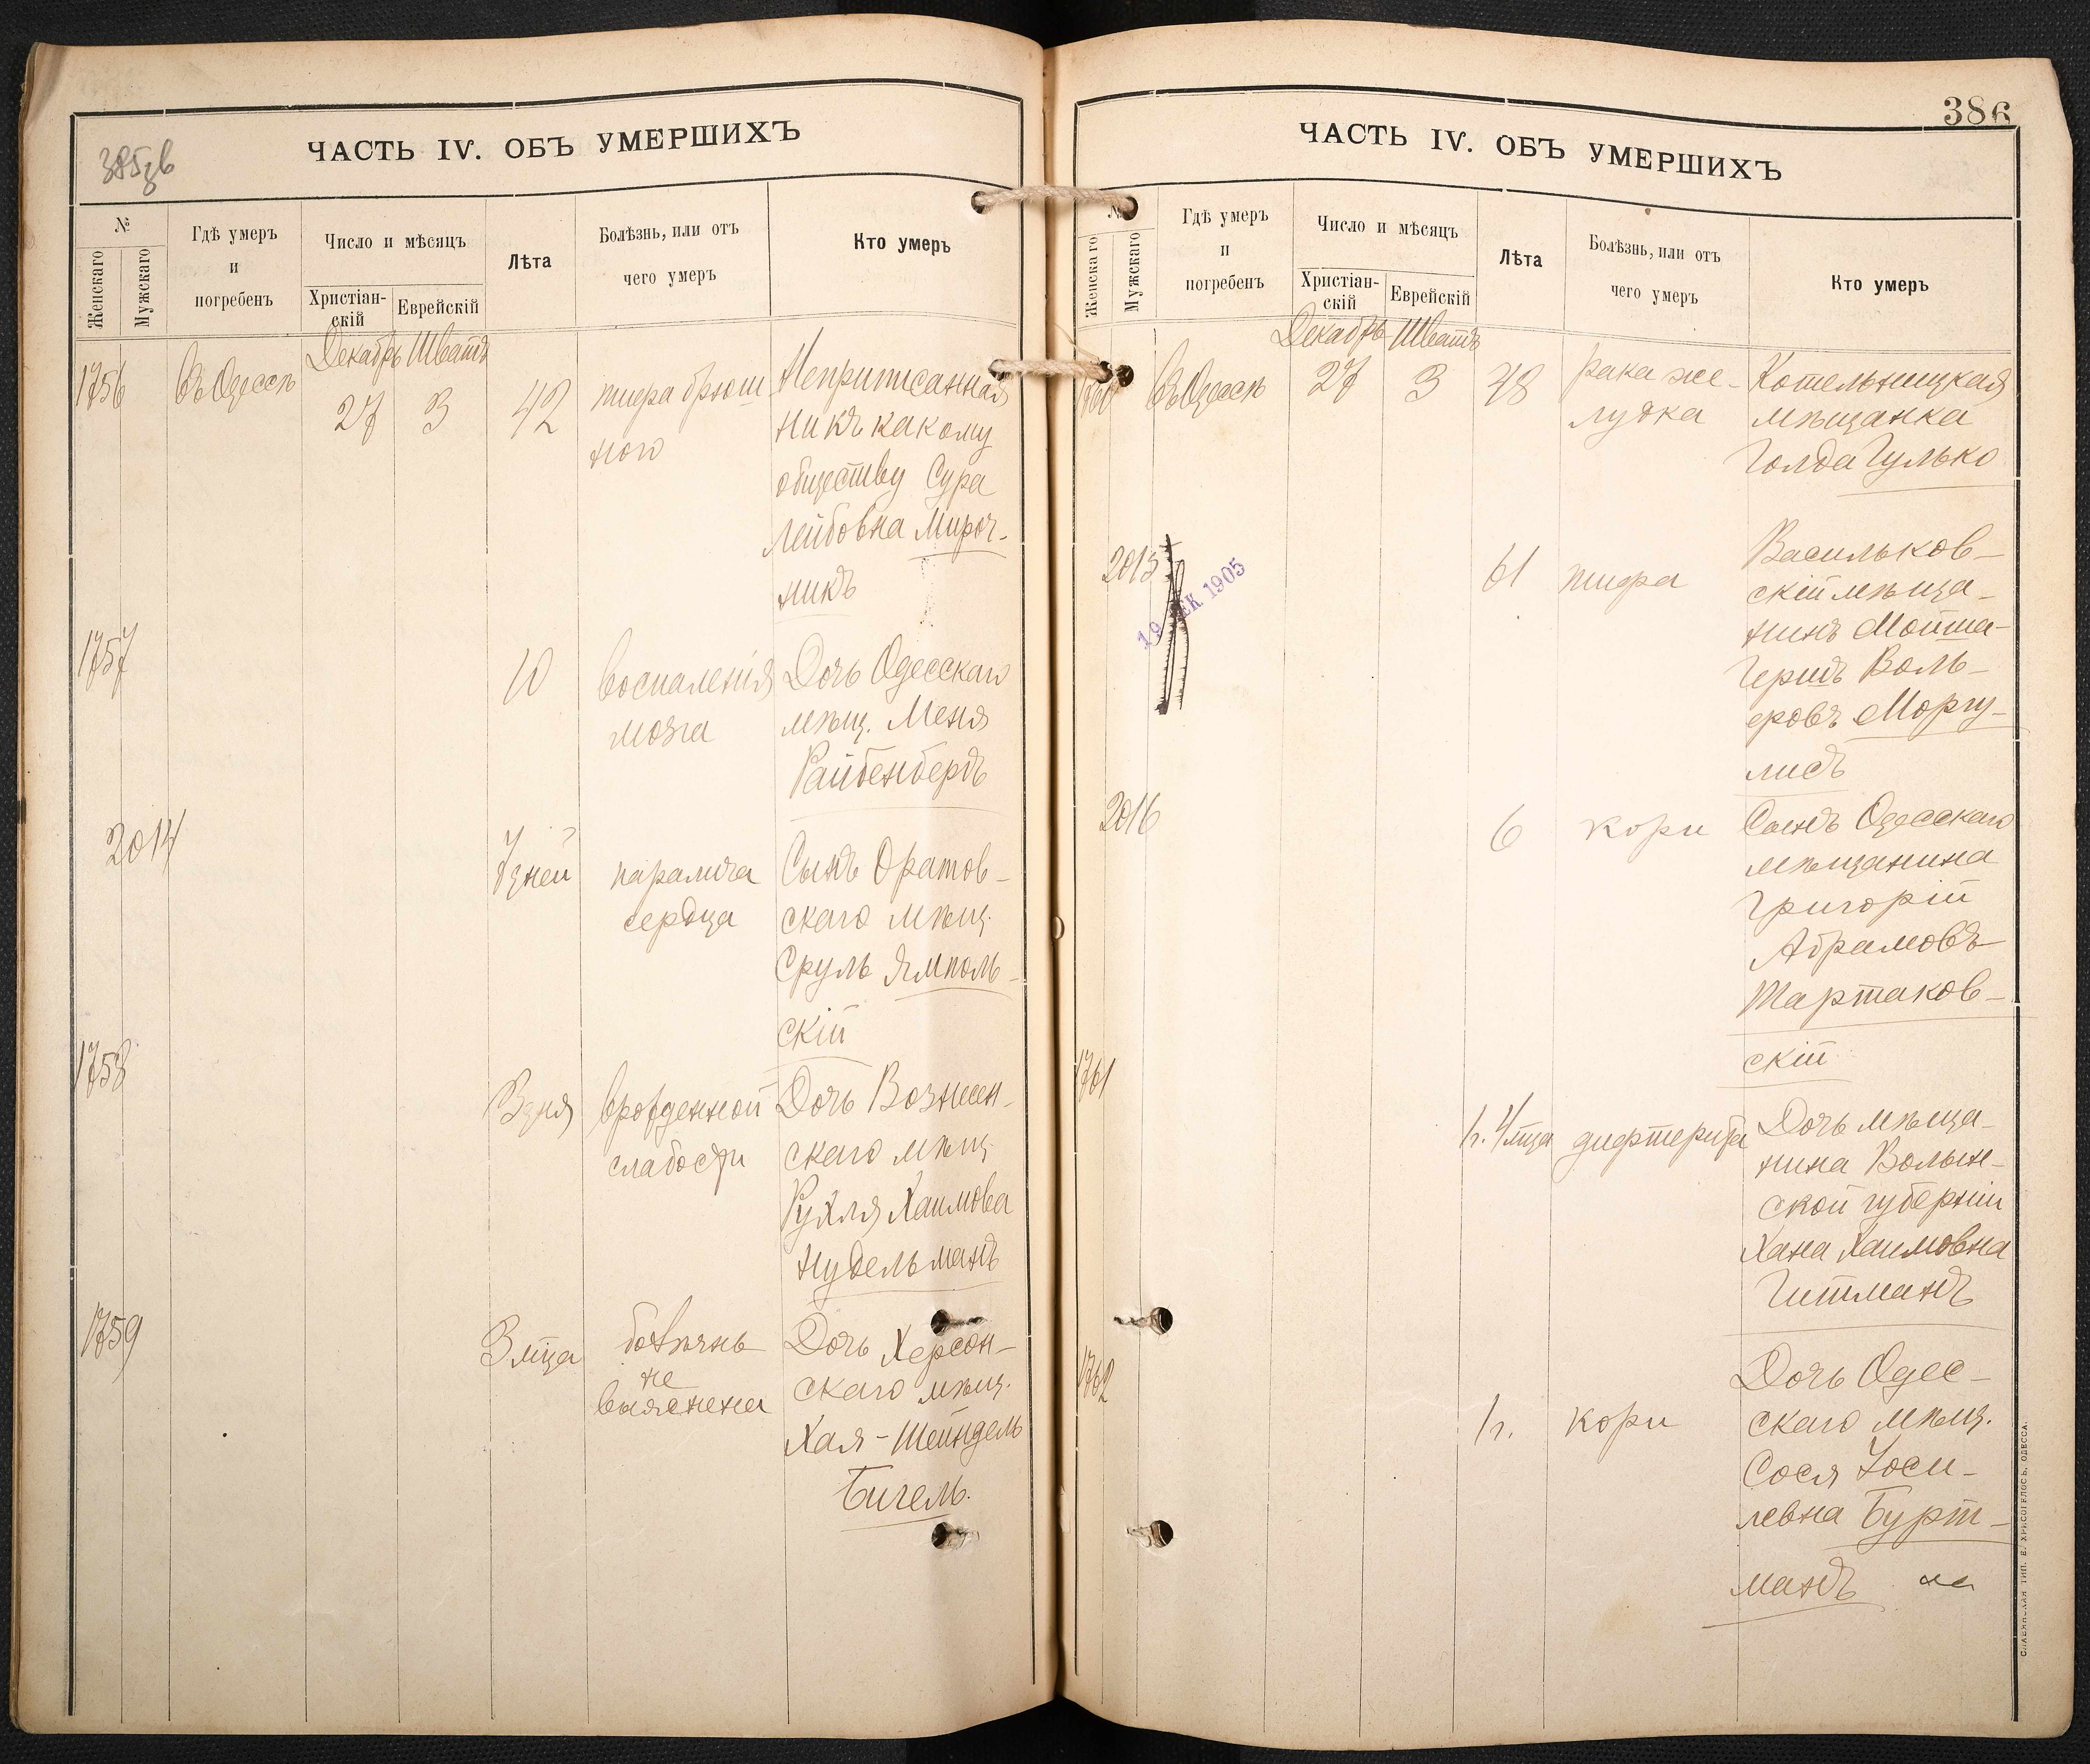 385 зв
ЧАСТЬ IV. ОБЪ УМЕРШИХЪ
№
Женскаго
Мужскаго
Гдѣ умеръ
и
погребенъ
Число и мѣсяцъ
Христіан-
скій
Еврейскій
Лѣта
Болѣзнь, или отъ
чего умеръ
Кто умеръ
Декабрь Шватъ
1756 Въ Одессѣ 27 3 42 тифа брюш
ного
Неприписанная
никъ какому
обществу Сура
Лейбовна Мироч-
никъ
1757 10 воспаленія
мозга
Дочь Одесскаго
мѣщ. Меня
Райбенбергъ
2014 7 дней паралича
сердца
Сынъ Оратов-
скаго мѣщ.
Сруль Ямполь-
скій
1758 3 дня врожденной
слабости
Дочь Вознесен-
скаго мѣщ.
Рухля Хаимова
Нудельманъ
1759 3 мца болѣзнь
не
выяснена
Дочь Херсон-
скаго мѣщ.
Хая-Шейндель
Бигель.
386
ЧАСТЬ IV. ОБЪ УМЕРШИХЪ
№
Женскаго
Мужскаго
Гдѣ умеръ
и
погребенъ
Число и мѣсяцъ
Христіан-
скій
Еврейскій
Лѣта
Болѣзнь, или отъ
чего умеръ
Кто умеръ
Декабрь Шватъ
1760 Въ Одессѣ 27 3 48 рака же-
лудка
Котельницкая
мѣщанка
Голда Гулько
2015 61 тифа
Васильков-
скій мѣща-
нинъ Мойша-
Гершъ Воль-
еровъ Моргу-
лисъ
2016 6 кори
Сынъ Одесскаго
мѣщанина
Григорій
Абрамовъ
Тартаков-
скій
1761 1 г. 4 мца дифтерита
Дочь мѣща-
нина Волын-
ской губерніи
Хана Хаимовна
Гитманъ
1762 1 г. кори
Дочь Одес-
скаго мѣщ.
Сося Іоси-
левна Бурт-
манъ
СЛАВЯНСКАЯ ТИП. Е. ХРИСОГЕЛОСЪ, ОДЕССА.